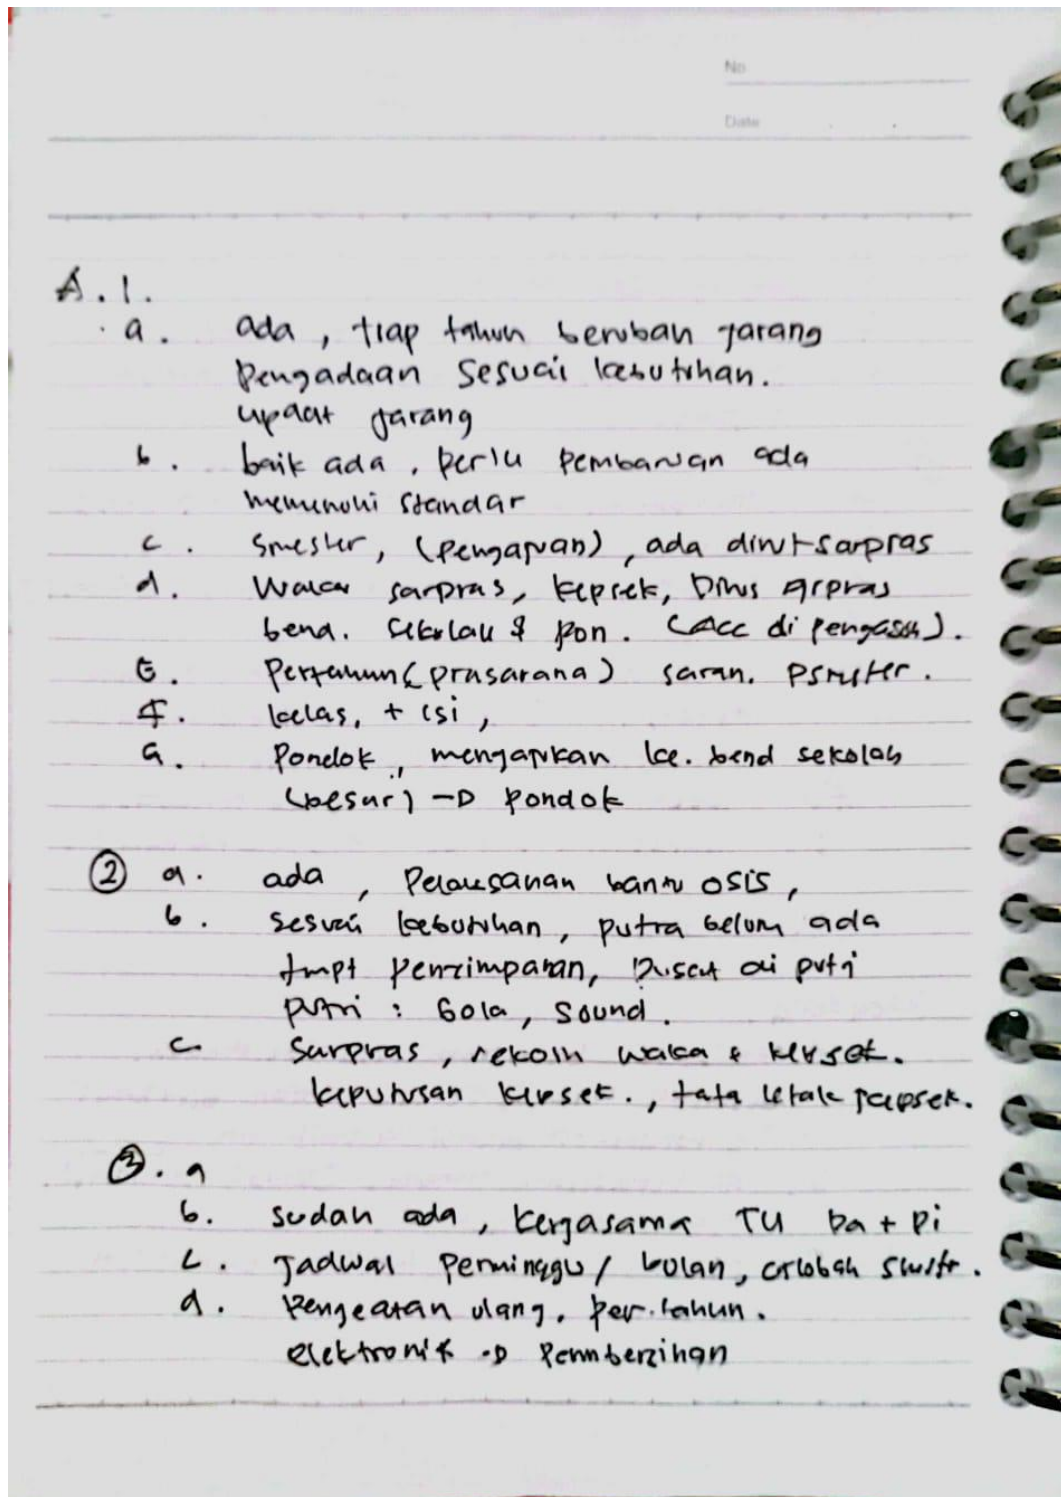 No
Date
A.1.
a. ada, tiap tahun berubah jarang
pengadaan sesuai kebutuhan.
updat jarang
b. baik ada, perlu pembaruan ada
memenuhi standar
c. Smester, (pengajuan), ada
d. Waka sarpras, kepsek,
bend. sekolah & pon. (Acc di pengasuh).
e. Pertahun (prasarana) saran.
f. kelas, + isi,
g. Pondok, mengajukan ke. bend sekolah
(besar) → pondok
② a. ada, bantu osis,
b. sesuai kebutuhan, putra belum ada
tmpt penyimpanan, pusat di putri
putri : bola, sound.
c Sarpras, waka & kepsek.
keputusan kepsek., tata letak
③. a
b. sudah ada, kerjasama TU pa + pi
c. Jadwal perminggu / bulan,
d. Pengecatan ulang, per.tahun.
elektronik →